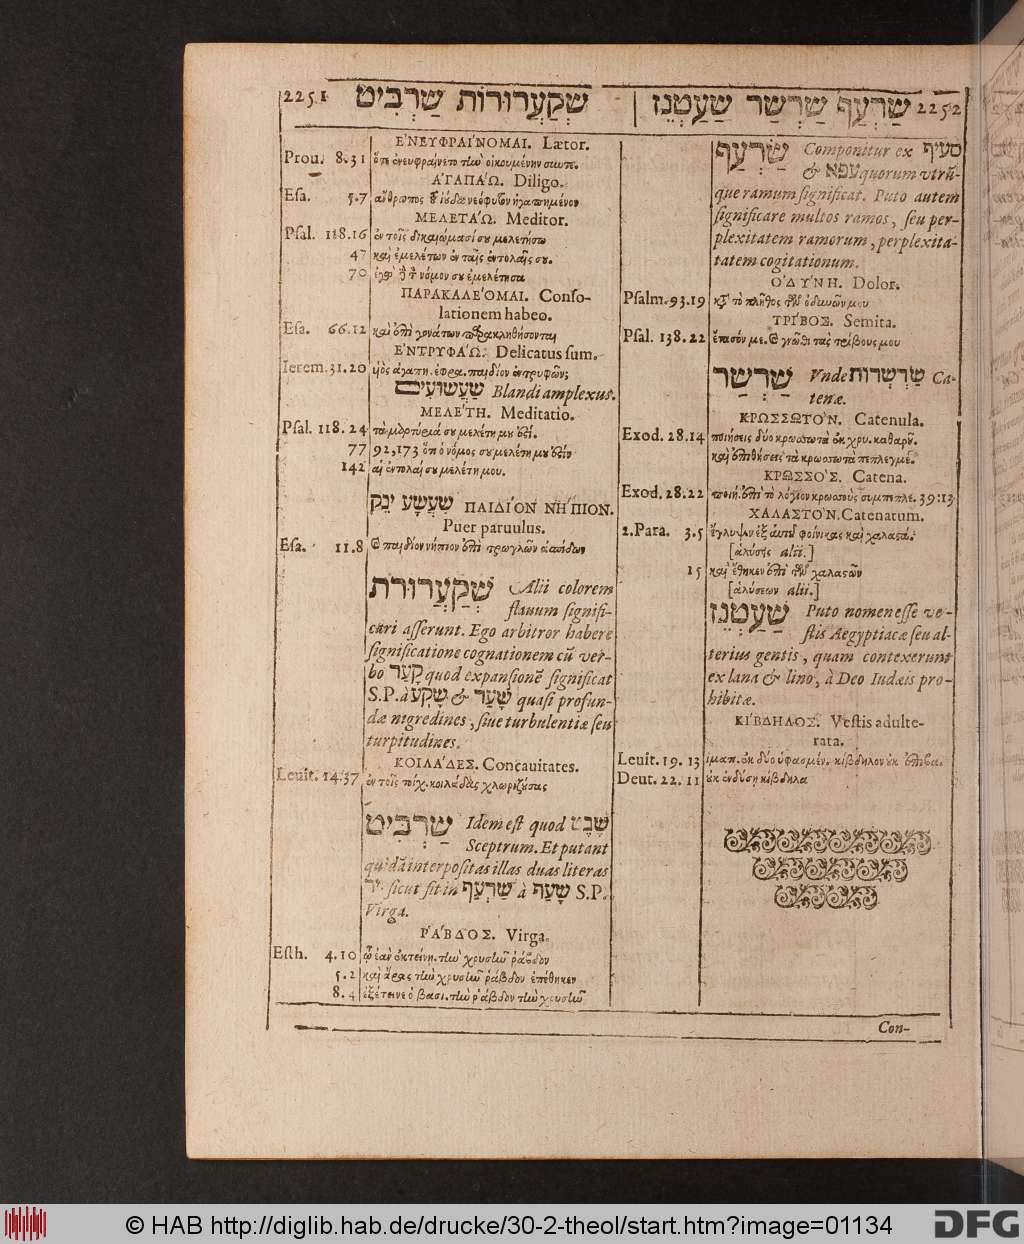 2251 שְׁקַעֲרוּרוֹת שַׁרְבִיט
ἘΝΕΥΦΡΑΊΝΟΜΑΙ. Lætor.
Prou. 8.31
ἈΓΑΠΆΩ. Diligo.
Esa. 5.7
ΜΕΛΕΤΆΩ. Meditor.
Psal. 118.16 ἐν τοῖς δικαιώμασί σου μελετήσω
47 καὶ ἐμελέτων ἐν ταῖς ἐντολαῖς σου.
70
ΠΑΡΑΚΑΛΈΟΜΑΙ. Conso-
lationem habeo.
Esa. 66.12
ἘΝΤΡΥΦΆΩ. Delicatus sum.
Ierem. 31.20
שַׁעֲשׁוּעִים Blandi amplexus.
ΜΕΛΈΤΗ. Meditatio.
Psal. 118.24 τὰ μαρτύριά σου μελέτη μου ἐστί.
77 92,173 ὅτι ὁ νόμος σου μελέτη μου ἐστίν
142 αἱ ἐντολαί σου μελέτη μου.
שִׁעֲשָׁע יֹנֵק ΠΑΙΔΊΟΝ ΝΉΠΙΟΝ.
Puer paruulus.
Esa. 11.8 καὶ παιδίον νήπιον ἐπὶ τρωγλῶν ἀσπίδων
שְׁקַעֲרוּרֹת Alii colorem
flauum signifi-
cari asserunt. Ego arbitror habere
significatione cognationem cū ver-
bo קָעַר quod expansionē significat
S.P. à שָׁקַע & שָׁעַר quasi profun-
dæ nigredines, siue turbulentiæ seu
turpitudines.
ΚΟΙΛΆΔΕΣ. Concauitates.
Leuit. 14.37 ἐν τοῖς τοίχ. κοιλάδας χλωριζούσας
שַׁרְבִיט Idem est quod שֶׁבֶט
Sceptrum. Et putant
quidā interpositas illas duas literas
sicut fit in שַׂרְעַף à שָׂעַף S.P.
Virga.
ῬΆΒΔΟΣ. Virga.
Esth. 4.10
5.2 καὶ ἄρας τὴν χρυσῆν ῥάβδον ἐπέθηκεν
8.4 ἐξέτεινε ὁ βασι. τὴν ῥάβδον τὴν χρυσῆν
שַׂרְעַף שַׁרְשַׁר שַׁעַטְנֵז 2252
שַׂרְעַף Componitur ex סעיף
& עפא quorum vtrū-
que ramum significat. Puto autem
significare multos ramos, seu per-
plexitatem ramorum, perplexita-
tatem cogitationum.
ὈΔΎΝΗ. Dolor.
Psalm. 93.19 κατὰ τὸ πλῆθος τῶν ὀδυνῶν μου
ΤΡΊΒΟΣ. Semita.
Psal. 138.22 ἔτασόν με. καὶ γνῶθι τὰς τρίβους μου
שַׁרְשַׁר Vnde שַׁרְשְׁרוֹת Ca-
tenæ.
ΚΡΩΣΣΩΤΌΝ. Catenula.
Exod. 28.14 ποιήσεις δύο κροσσωτὰ ἐκ χρυ. καθαροῦ.
καὶ ἐπιθήσεις τὰ κροσσωτὰ πεπλεγμέ.
ΚΡΩΣΣΌΣ. Catena.
Exod. 28.22 ποιή. ἐπὶ τὸ λόγιον κροσσοὺς συμπεπλε. 39:13
ΧΑΛΑΣΤΌΝ. Catenatum.
2. Para. 3.5 ἔγλυψεν ἐξ αὐτοῦ φοίνικας καὶ χαλαστά.
[ἁλύσεις alii.]
15 καὶ ἔθηκεν ἐπὶ τῶν χαλαστῶν
[ἁλύσεων alii.]
שַׁעַטְנֵז Puto nomen esse ve-
stis Aegyptiacæ seu al-
terius gentis, quam contexerunt
ex lana & lino, à Deo Iudæis pro-
hibitæ.
ΚΊΒΔΗΛΟΣ. Vestis adulte-
rata.
Leuit. 19. 13
Deut. 22. 11 οὐκ ἐνδύσῃ κίβδηλα
Con-
© HAB http://diglib.hab.de/drucke/30-2-theol/start.htm?image=01134
DFG